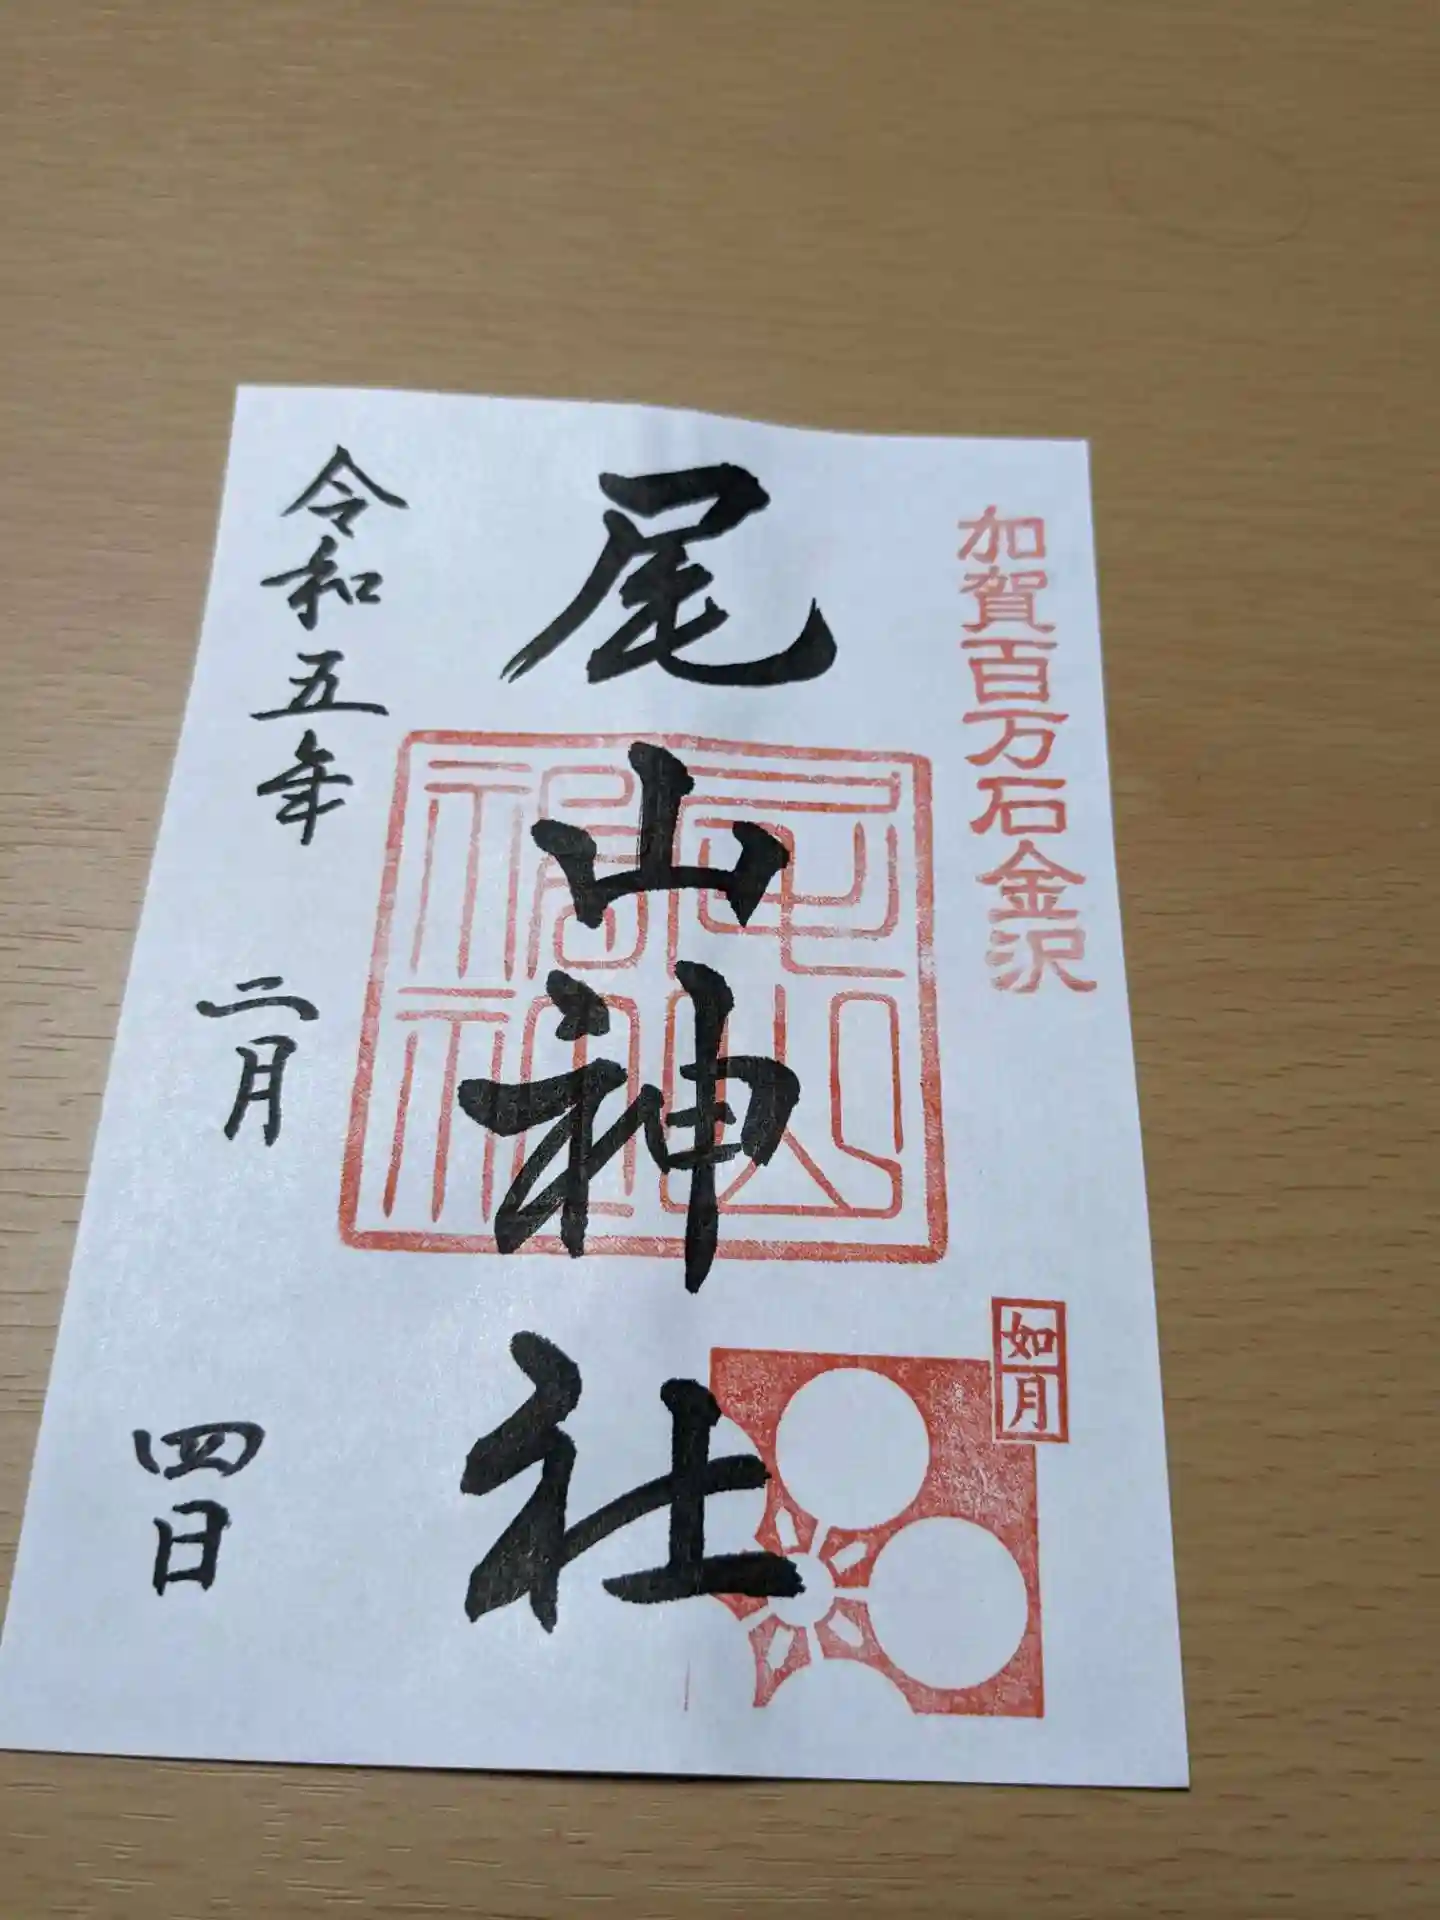 加賀百万石金沢
如月
尾山神社
令和五年 二月 四日